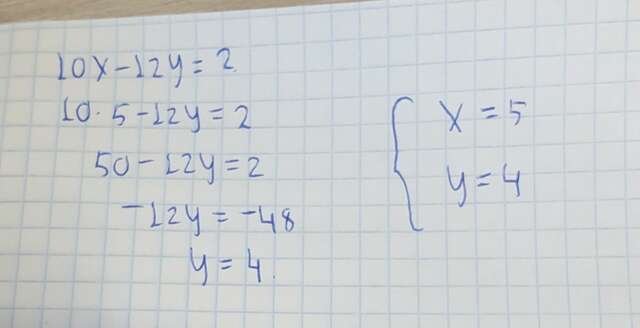 10x-12y=2
10·5-12y=2
50-12y=2
-12y=-48
y=4.
{ x=5
y=4